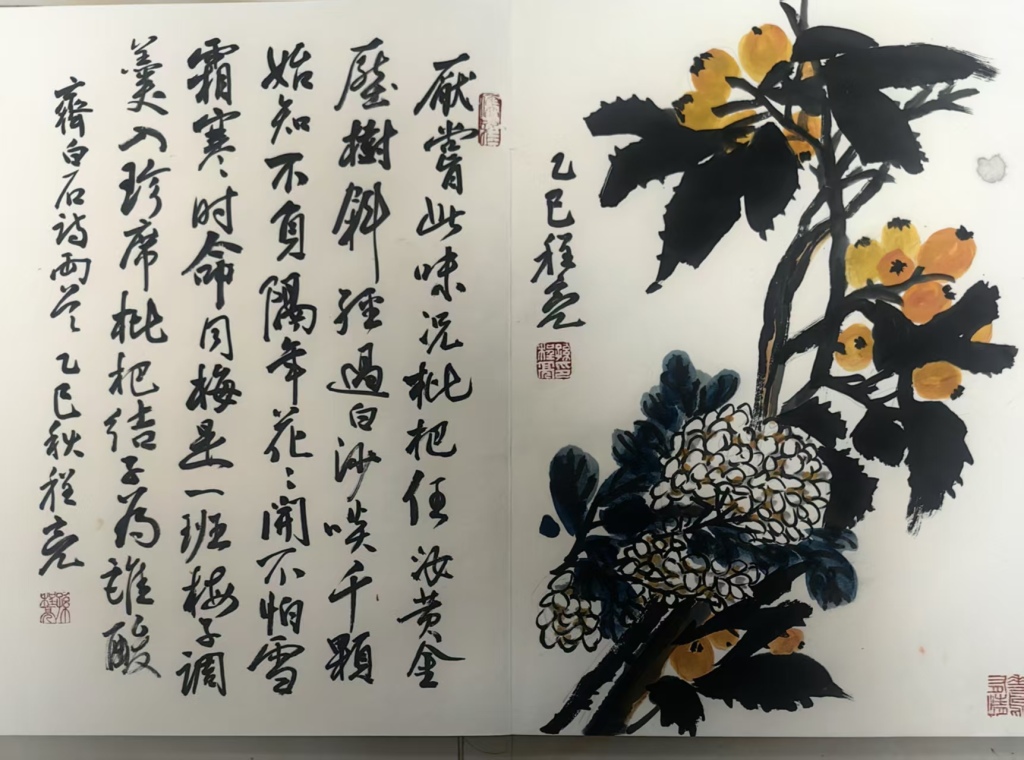 乙巳程亮
厭嘗此味况枇杷任汝黄金
壓樹斜經過白沙啖千顆
始知不負隔年花開不怕雪
霜寒时命同梅是一班梅子調
羹入珍席枇杷結子为誰酸
齊白石詩兩首乙巳秋程亮